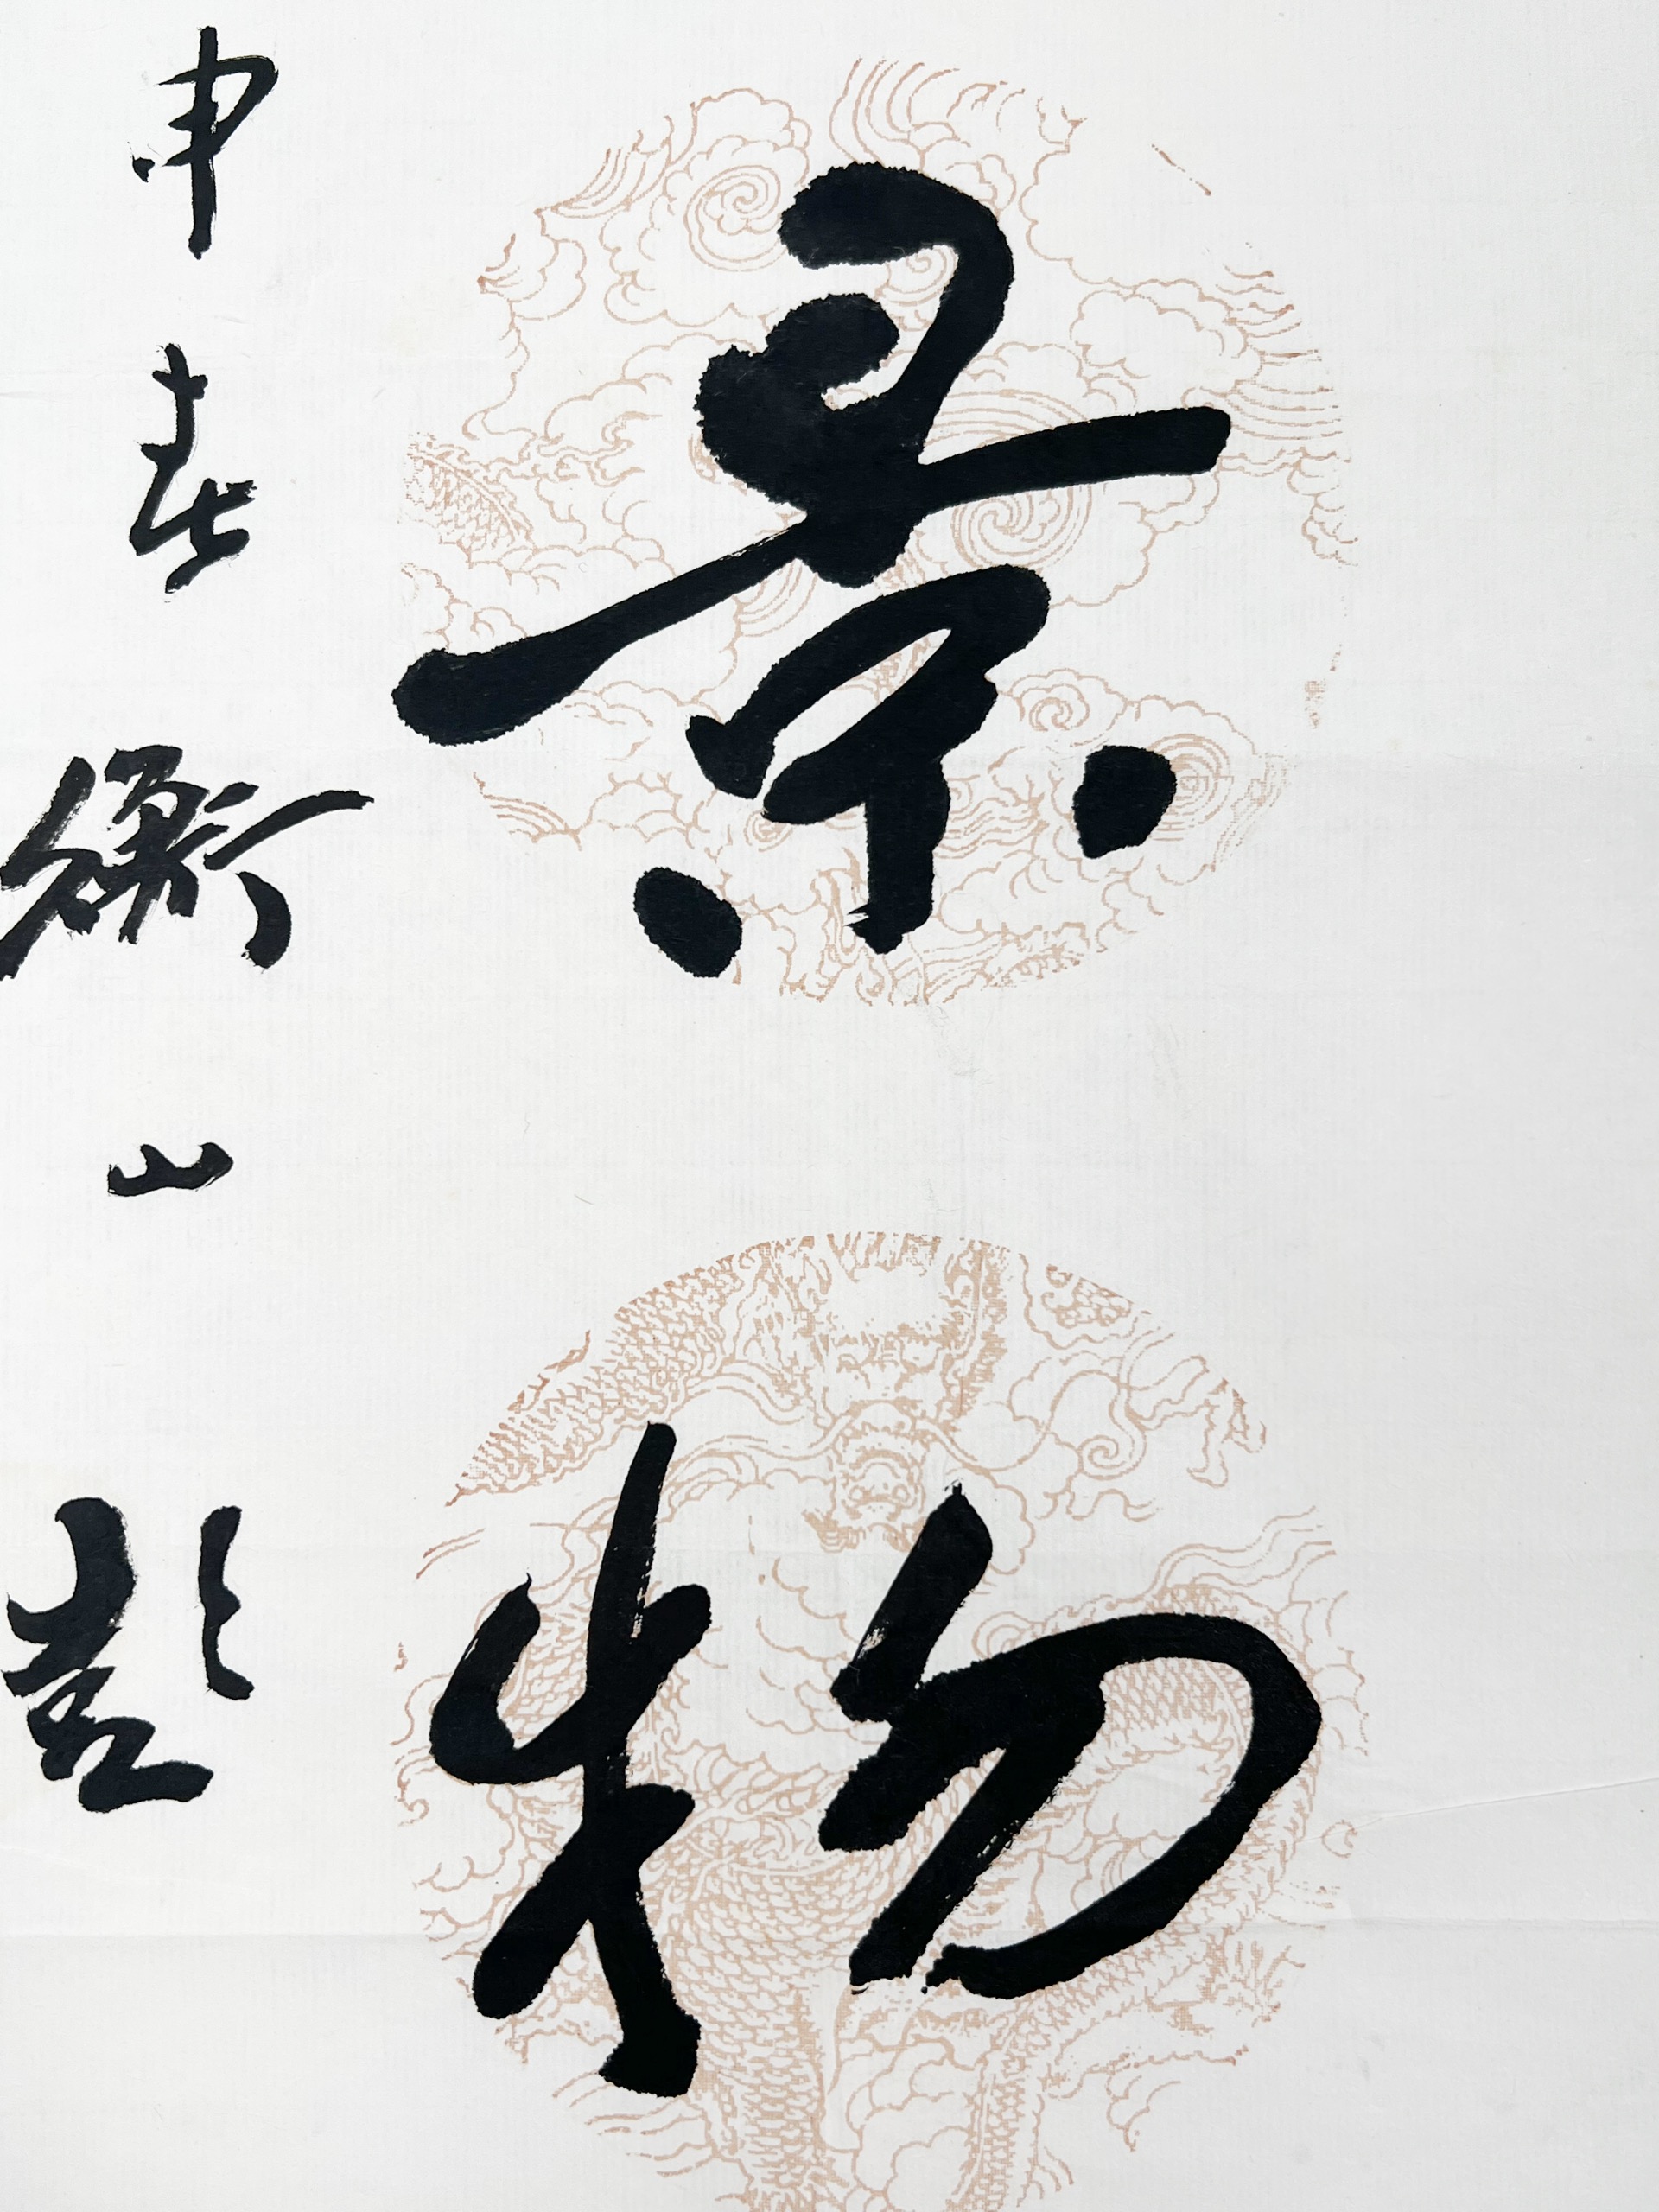 景物
申春衡山彭